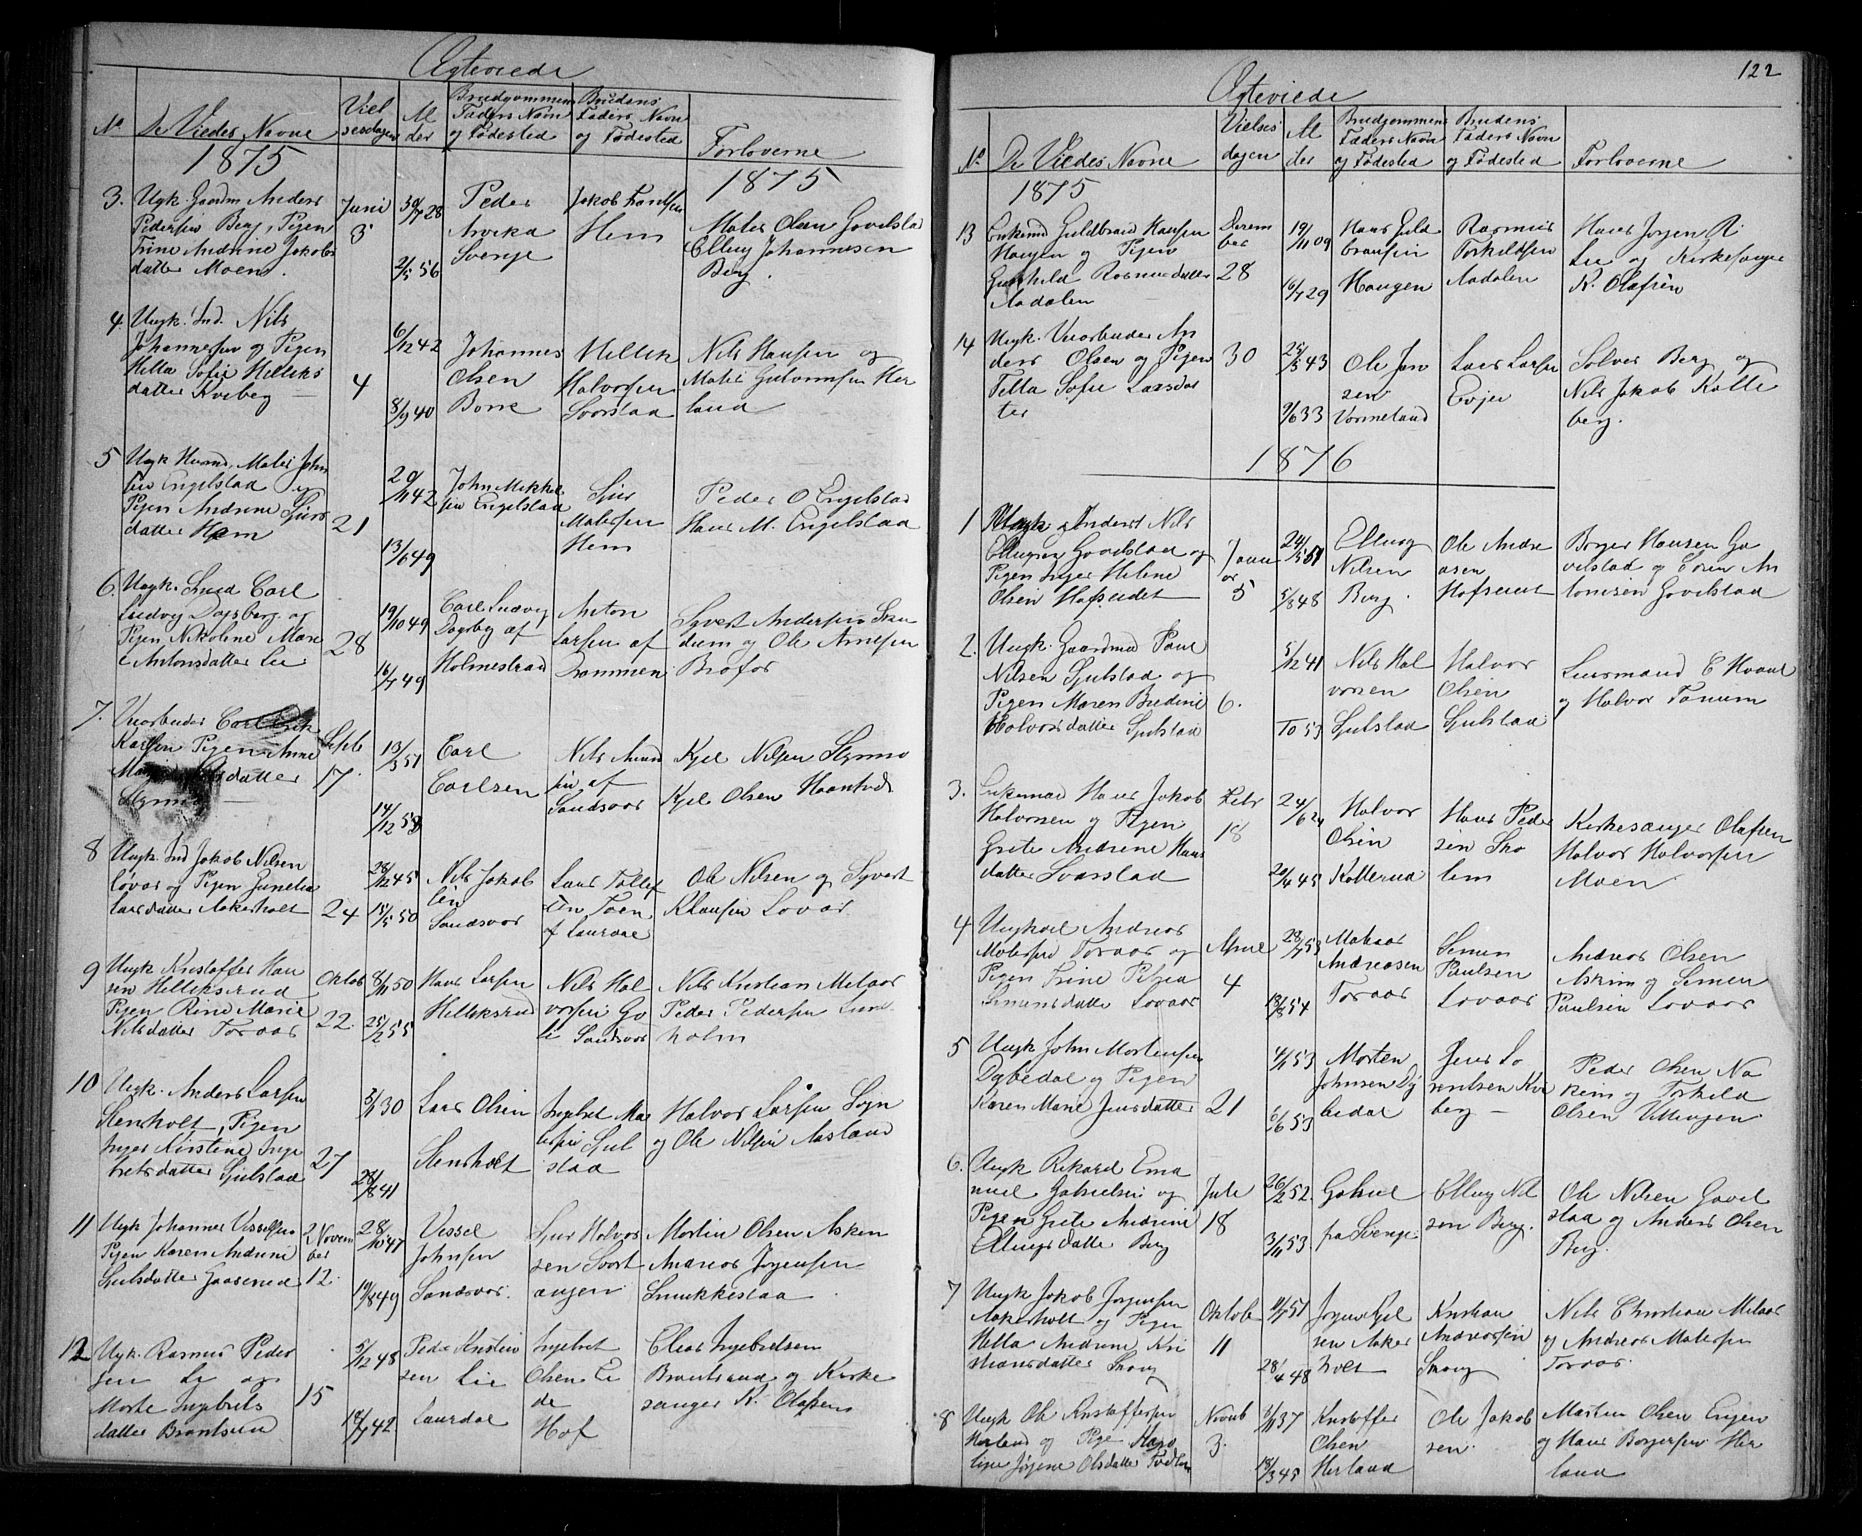 Ægteviede
No
De Viedes Navne
Viel
sesdagen
Al
der
Brudgommens
Faders Navn
og Fødested
Brudens
Faders Navn
og Fødested
Forloverne
1875
1875
3. Ugk. Gaardm Anders
Pedersen Berg, Pigen
Trine Andrine Jakobs
datter Moen.
Juni
3
30/7 28
2/5 56
Peder
Arvika
Sverige
Jakob
Hem
Mates Olsen Govelstad
Ellev Johannesen
Berg.
4. Ungk. Ind. Nils
Johannesen og Pigen
Hella Sofie Helleks
datter Kreberg
4
6/12 42
8/9 40
Johannes
Olsen
Borre
Hellek
Halvorsen
Svarstad
Nils Hansen og
Mates Gulovnsen Her
land
5 Ugk Husmd. Mates John
sen Engelstad og
Pigen Andrine Sjurs
datter Hem
21
20/11 42
13/6 49
John Mikkel
sen Engelstad
Sjur
Matesen
Hem
Peder O Engelstad
Hans M. Engelstad
6. Ungk. Smed Carl
Ludvig Dagsberg og
Pigen Nikoline Mari
e Antonsdatter Lie
28
19/10 49
16/7 49
Carl Ludvig
Dagsbg af
Holmestrand
Anton
Larsen af
Drammen
Syvert Andersen
dum og Ole Arnesen
Brofos
7. Snorbuder Carl
Karlsen Pigen Anne
datter
Septb
17.
13/3 51
14/12 53
Carl
Carlsen
Nils Amund
sen af
Sandsvær
Kjel Nilsen Stymo
Kjel Olsen Haantvedt
8 Ungk. Ind Jakob Nilsen
Lovar og Pigen Gunelia
Larsdatter Aakerholt
24
28/12 45
15/5 50
Nils Jakob
sen
Sandsvær
Lars Tollef
sen Toen
af Laurdal
Ole Nilsen og Syvert
Klausen Lovar.
9 Ungk Kristoffer Han
sen Helleksrud
Pigen Rine Marie
Nilsdatter Toraas
Oktob
22.
8/11 50
25/2 55
Hans Larsen
Helleksrud
Nils Hal
vorsen Go
li Sandsvær
Nils Kristian Melaas
Peder Pedersen Lin
holm
10 Ungk. Anders Larsen
Stenholt, Pigen
Inger Kirstine Inge
bretsdatter Gjulstad
27
3/1 30
28/8 41
Lars Olsen
Stenholt
Ingebret Ma
tesen Gjul
stad
Halvor Larsen Sogn
og Ole Nilsen Aasland
11 Ugk Johannes Visselsen
Pigen Karen Andrine
Sjulsdatter Gaaserud
Novem
ber
12.
28/10 47
19/8 49
Vissel
Johnsen
Sandsvær.
Sjur Halvor
sen Svart
angen
Martin Olsen Asken
Andreas Jørgensen
Smukkestad
12 Ugk. Rasmus Peder
sen Li og
Marte Ingebrets
datter Brantsrud
15
5/12 48
18/7 42
Peder Kristen
sen Lie
Laurdal
Ingebret
Olsen Ei
de
Hof
Elias Ingebretsen
Brantsrud og Kirke
sanger K. Olafsen
122
Ægteviede
No
De Viedes Navne
Vielses
dagen
Al
der
Brudgommens
Faders Navn
og Fødested
Brudens
Faders Navn
og Fødested
Forloverne
1875
13 Enkemd Guldbrand Hansen
Haugen og Pigen
Gunhild Rasmusdatter
Aadalen
Decem
ber
28
19/11 09
16/7 29
Hans Guld
bransen
Haugen
Rasmus
Torkildsen
Aadalen
Hans Jørgen R.
Lie og Kirkesanger
K. Olafsen
14 Ungk. Snorbuder An
ders Olsen og Pigen
Tella Sofie Larsdat
ter
30
25/5 43
2/6 33
Ole Jan
sen
Vermeland
Lars Larsen
Evju
Solver Berg og
Nils Jakob Kolle
berg.
1876
1 Ungk Inderst Nils
Ellingsen Govelstad og
Pigen Inger Helene
Olsen Hofseidet
Janu
ar
5
24/5 51
5/3 48
Elling
Nilsen
Berg.
Ole Andre
asen
Hofseidet
Børger Hansen Go
velstad og Edvin An
tonisen Govelstad
2. Ungk. Gaardmd Paul
Nilsen Gjulstad og
Pigen Maren Bredine
Halvorsdatter Gjulstad
6.
5/12 41
10 53
Nils Hal
vorsen
Gjulstad
Halvor
Olsen
Gjulstad
Lensmand E Hvaal
og Halvor Tanum
3. Enkemand Hans Jakob
Halvorsen og Pigen
Grete Andrine Hans
datter Svarstad
Febr
18
24/6 24
20/4 45
Halvor
Olsen
Kollerud
Hans Peder
sen Sko
lem
Kirkesanger Olafsen
Halvor Halvorsen
Moen
4 Ungkarl Andreas
Matesen Toraas og
Pigen Trine Petrea
Simensdatter Lovaas
April
4
28/7 53
18/8 54
Mathias
Andreasen
Toraas
Semen
Paulsen
Lovaas
Andreas Olsen
Askim og Semen
Paulsen Lovaas
5 Ungk John Mortensen
Dybedal og Pigen
Karen Marie Jensdatter
21
4/11 53
6/6 53
Morten
Johnsen Dy
bedal
Jens Lo
rentsen Kre
berg
Peder Olsen Na
kim og Torkild
Olsen Vittingen
6. Ungk Rikard Ema
nuel Gabrielsen og
Pigen Grete Andrine
Ellingsdatter Berg
Juli
18
26/2 52.
3/11 53
Gabriel
fra Sverige
Elling Nil
sen Berg.
Ole Nilsen Govel
stad og Anders Olsen
Berg.
7 Ungk Jakob Jørgensen
Aakerholt og Pigen
Hella Andrine Kri
stiansdatter Skoug
Oktobe
11
11/7 51
28/4 48
Jørgen Kjel
sen Aaker
holt
Kristian
Andreassen
Skoug
Nils Christian Melaas
og Andreas Matesen
Toraas.
8 Ungk Ole Kristoffersen
Herland og Pige Karo
line Jørgine Olsdatter
Novmb
3.
3/11 37
18/3 45
Kristoffer
Olsen
Herland
Ole Jakob
sen.
Martin Olsen Engen
og Hans Børgersen Her
land